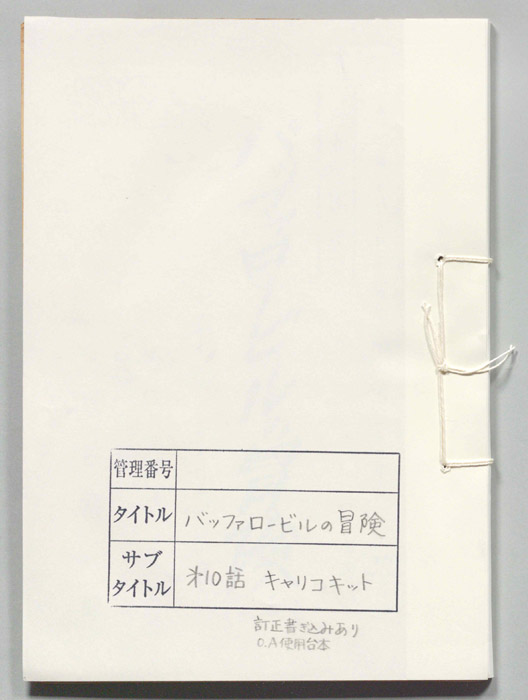 管理番号
タイトル バッファロービルの冒険
サブタイトル 第10話 キャリコキット
訂正書き込みあり
O.A使用台本